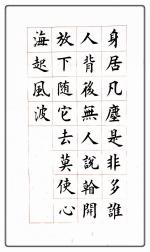 身居凡塵是非多誰
人背後無人說開
放下随它去莫使心
海起風波